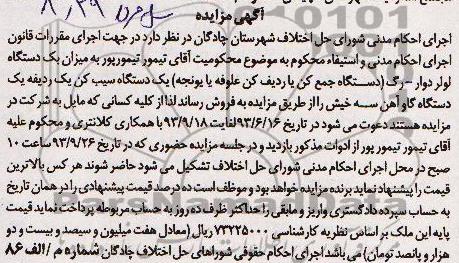 آگهی مزایده
اجرای احکام مدنی شورای حل اختلاف شهرستان چادگان در نظر دارد در جهت اجرای مقررات قانون
اجرای احکام مدنی و استیفاء محکوم به موضوع محکومیت آقای تیمور تیمورپور به میزان یک دستگاه
لولر دوار -رگ (دستگاه جمع کن یا ردیف کن علوفه یا یونجه) یک دستگاه سیب کن یک ردیفه یک
دستگاه گاو آهن سه خیش را از طریق مزایده به فروش رساند لذا از کلیه کسانی که مایل به شرکت در
مزایده هستند دعوت می شود در تاریخ ۹۳/۶/۱۶ لغایت ۹۳/۹/۱۸ با همکاری کلانتری و محکوم علیه
آقای تیمور تیمور پور از ادوات مذکور بازدید و در جلسه مزایده حضوری که در تاریخ ۹۳/۹/۲۶ ساعت ۱۰
صبح در محل اجرای احکام مدنی شورای حل اختلاف تشکیل می شود حاضر شوند هر کس بالاترین
قیمت را پیشنهاد نماید برنده مزایده خواهد بود و موظف است ده درصد قیمت پیشنهادی را در همان تاریخ
به حساب سپرده دادگستری واریز و مابقی را حداکثر ظرف ده روز به حساب مربوطه پرداخت نماید قیمت
پایه این ملک بر اساس نظریه کارشناسی ۷۳۲۲۵۰۰۰ ریال (معادل هفت میلیون و سیصد و بیست و دو
هزار و پانصد تومان) می باشد اجرای احکام حقوقی شوراهای حل اختلاف چادگان شماره م / الف ۸۶